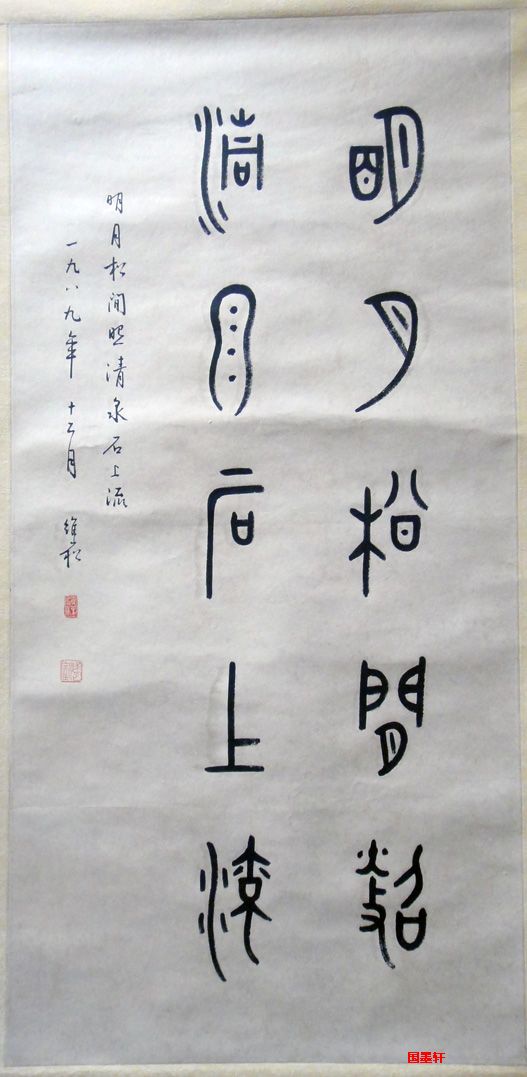 明月松間照
清泉石上流
明月松间照清泉石上流
一九八九年十二月 維崧
国墨轩